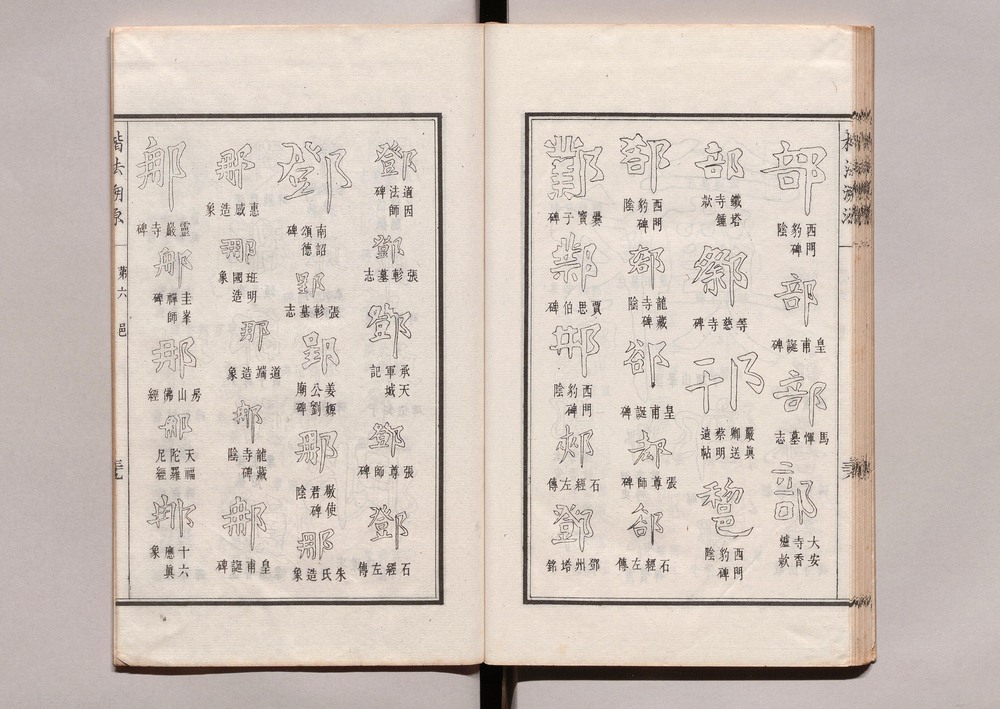 部 西門豹碑陰
部 皇甫誕碑
部 馬惲墓志
部 大安寺香爐款
部 鐵塔寺鐘款
等慈寺碑
邗 顏眞卿送蔡明遠帖
西門豹碑陰
郤 西門豹碑陰
郤 龍藏寺碑陰
郤 皇甫誕碑
却 張尊師碑
郤 石經左傳
鄴 爨寶子碑
鄴 賈思伯碑
邢 西門豹碑陰
郟 石經左傳
鄧 鄧州塔銘
鄧 道因法師碑
鄧 張軫墓志
鄧 承天軍城記
鄧 張尊師碑
鄧 石經左傳
鄧 南詔德頌碑
郢 張軫墓志
郢 姜嫄公劉廟碑
那 敬使君碑陰
那 朱氏造象
那 惠感造象
那 班明國造象
那 道端造象
那 龍藏寺碑陰
那 皇甫誕碑
那 靈巖寺碑
那 圭峯禪師碑
那 房山佛經
那 天福陀羅尼經
那 十六應眞象
楷法溯源 第六 邑